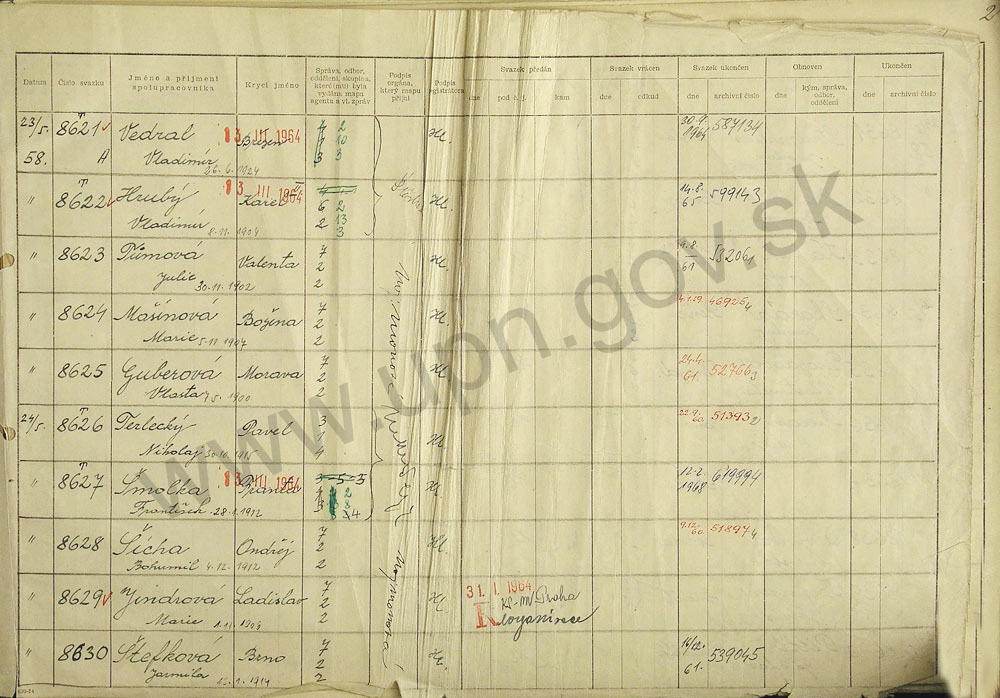 2
Datum Číslo svazku Jméno a příjmení spolupracovníka Krycí jméno Správa, odbor, oddělení, skupina, které(mu) byla vydána mapa agenta a vl. zpráv Podpis orgána, který mapu přijal Podpis registrátora Svazek předán Svazek vrácen Svazek ukončen Obnoven Ukončen
dne pod č. j. kam dne odkud dne archivní číslo dne kým, správa, odbor, oddělení dne archivní číslo
23/5. 8621 Vedral 13 III 1964 Březen 7 2 Hl. 30.9. 1964 587134
58. A Vladimír 3 3
26.6.1924
" 8622 Hrubý 13 III 1964 Karel II 6 2 Hl. 14.8. 65 599143
Vladimír 2 13
8.11.1904 3
" 8623 Tůmová Valenta 7 2 Hl. 9.8 61 532061
Julie 30.11.1902
" 8624 Mašínová Božena 7 2 2 Hl. 4.1.59. 469254
Marie 5.11.1907
" 8625 Guberová Morava 7 2 2 Hl. 24.4. 61. 527663
Vlasta 7.5.1900
24/5. 8626 Terlecký Pavel 3 1 4 Hl. 22.9. 60. 513932
Nikolaj 30.10.1915
" 8627 Šmolka 13 III 1964 3-5-5 Hl. 12.2. 1968 619994
František 28.1.1912
" 8628 Šícha Ondřej 7 2 2 Hl. 9.12. 60. 518974
Bohumil 4.12.1912
" 8629 Jindrová Ladislav 7 2 2 Hl. 31. I. 1964 KS-MV Praha
Marie 1.11.1904 R
" 8630 Štefková Brno 7 2 2 Hl. 14/12. 61. 539045
Jarmila
www.upn.gov.sk